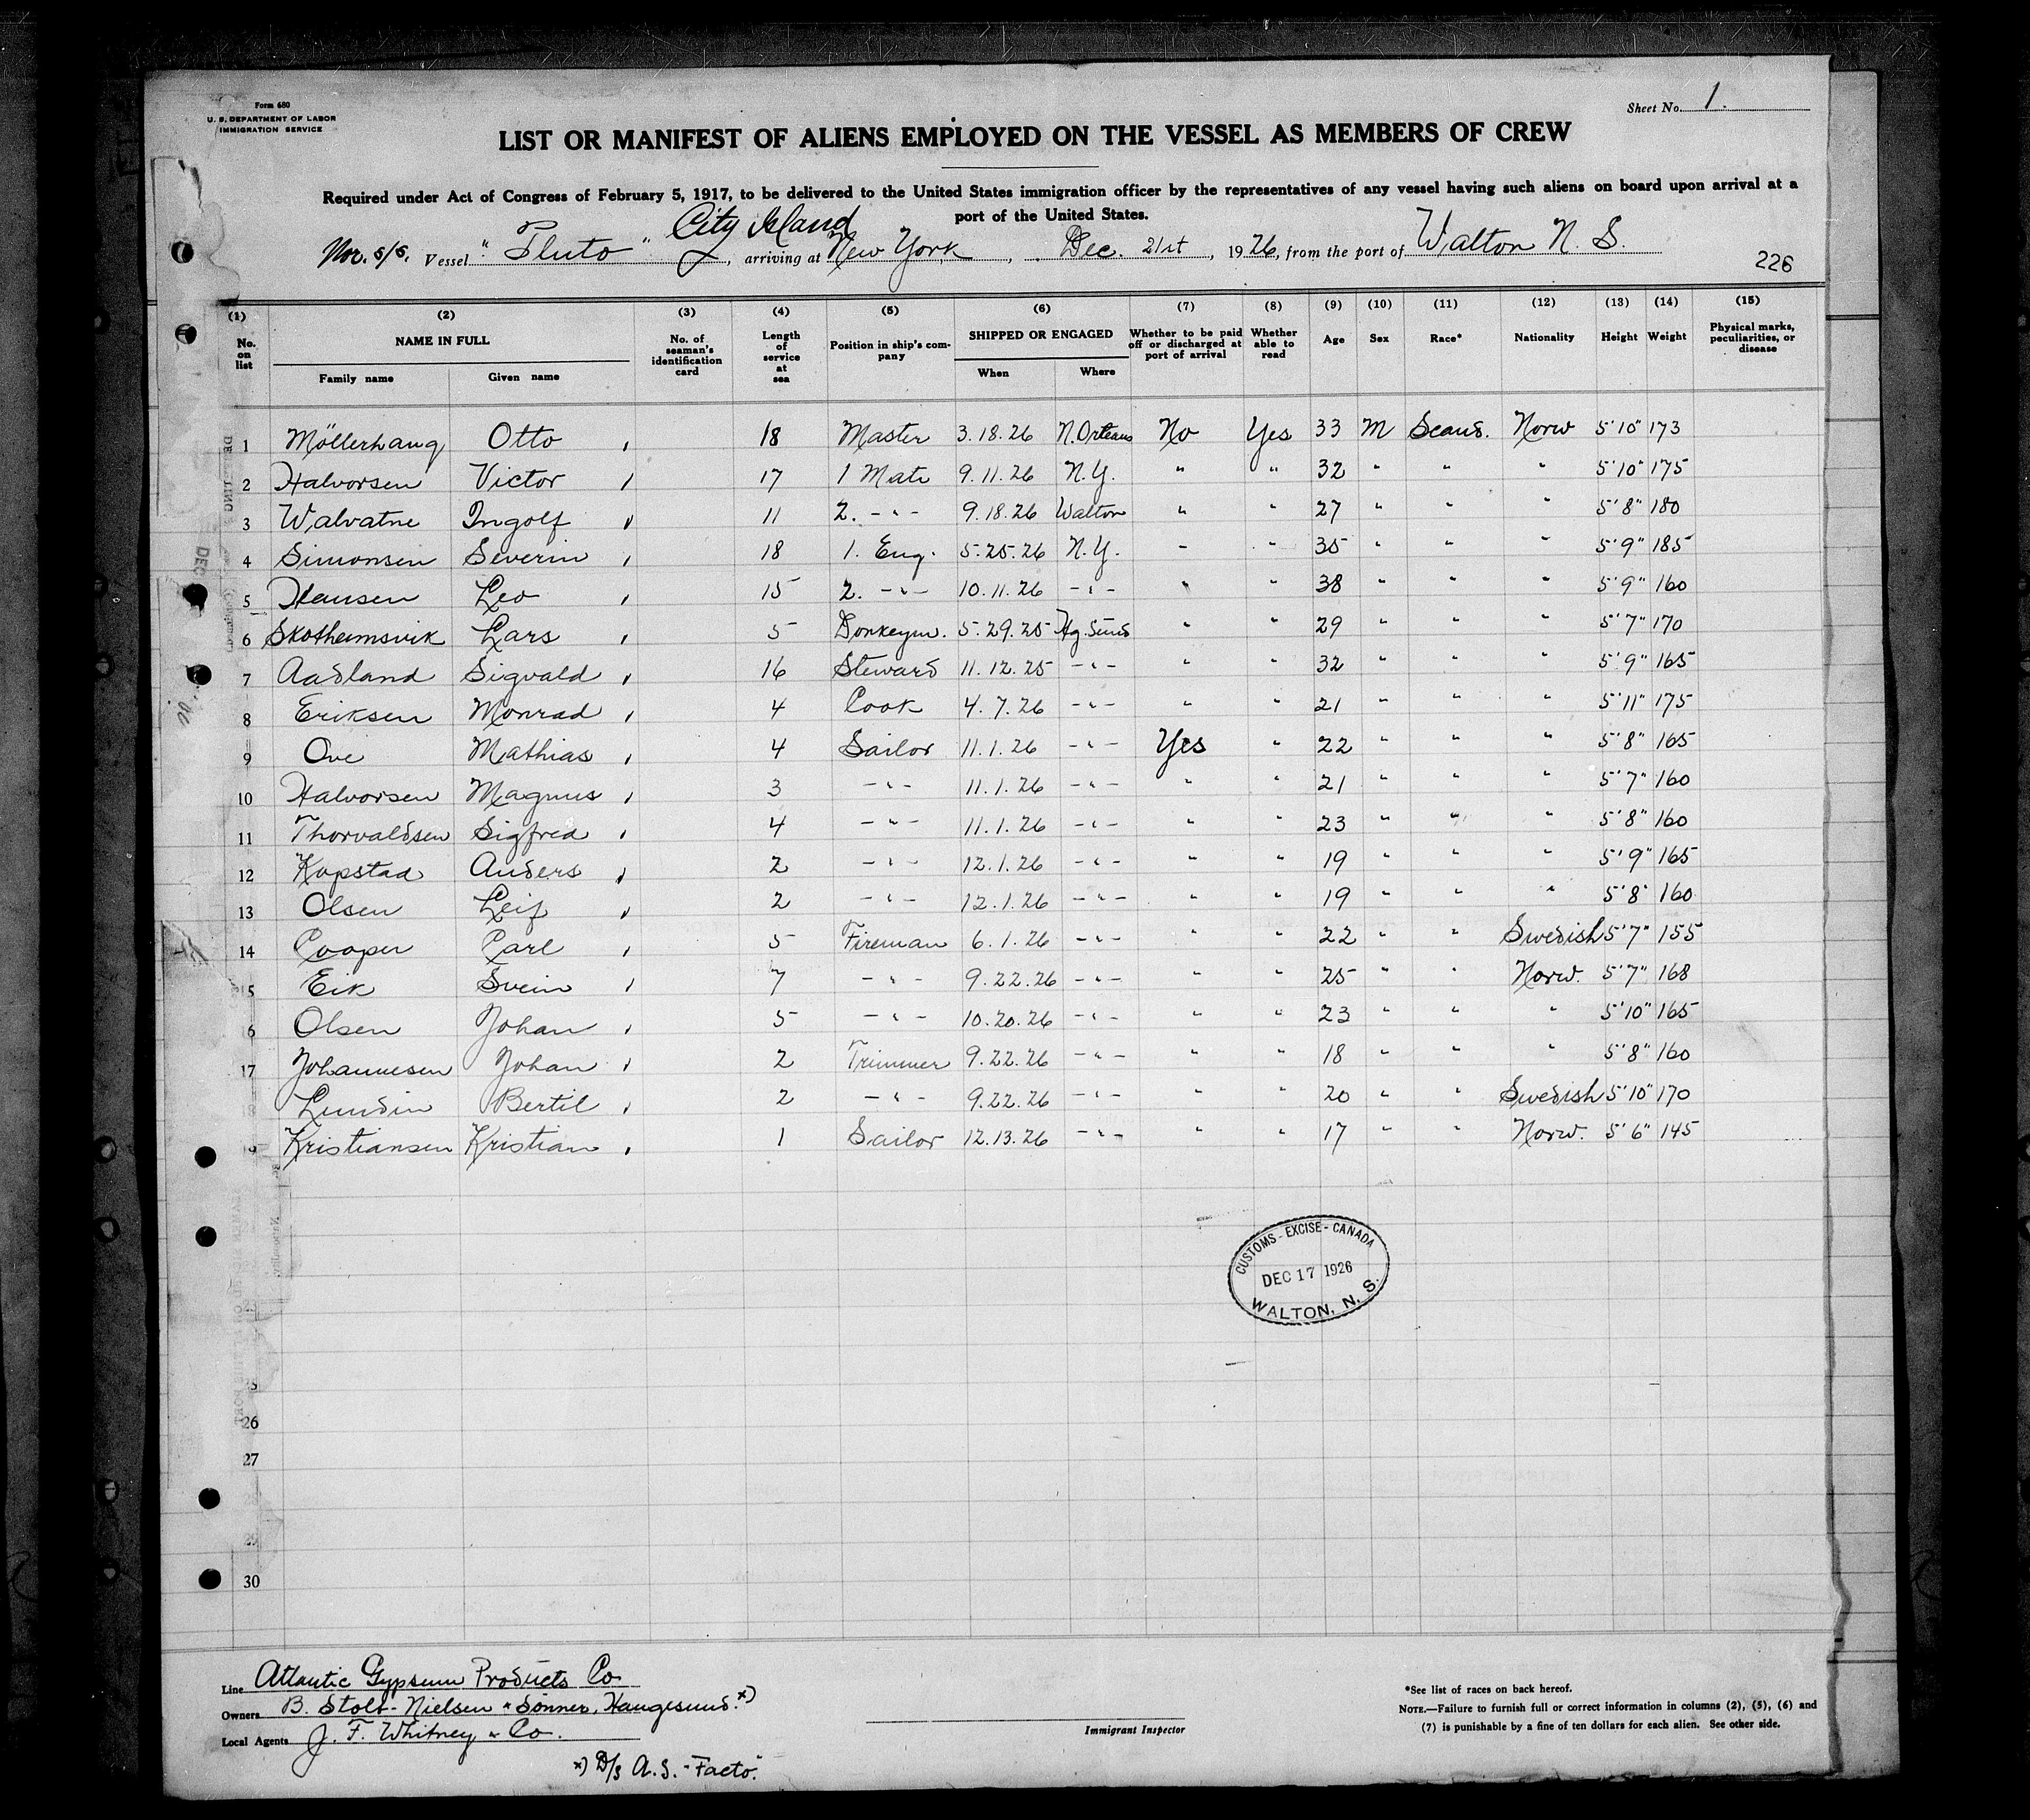 Form 680
U. S. DEPARTMENT OF LABOR
IMMIGRATION SERVICE
Sheet No. 1.
LIST OR MANIFEST OF ALIENS EMPLOYED ON THE VESSEL AS MEMBERS OF CREW
Required under Act of Congress of February 5, 1917, to be delivered to the United States immigration officer by the representatives of any vessel having such aliens on board upon arrival at a
port of the United States.
City Island
Nor. S/S. Vessel "Pluto", arriving at New York, Dec. 21st, 1926, from the port of Walton N. S.
226
(1) (2) (3) (4) (5) (6) (7) (8) (9) (10) (11) (12) (13) (14) (15)
No. on list NAME IN FULL Family name Given name No. of seaman's identification card Length of service at sea Position in ship's company SHIPPED OR ENGAGED When Where Whether to be paid off or discharged at port of arrival Whether able to read Age Sex Race* Nationality Height Weight Physical marks, peculiarities, or disease
1 Möllerhaug Otto 18 Master 3.18.26 N.Orleans No Yes 33 M Scand. Norw 5'10" 173
2 Halvorsen Victor 17 1 Mate 9.11.26 N.Y. " " 32 " " " 5'10" 175
3 Walvatne Ingolf 11 2. -"- 9.18.26 Walton " " 27 " " " 5'8" 180
4 Simonsen Severin 18 1. Eng. 5.25.26 N.Y. " " 35 " " " 5'9" 185
5 Hansen Leo 15 2. -"- 10.11.26 -"- " " 38 " " " 5'9" 160
6 Skotheimsvik Lars 5 Donkeym. 5.29.25 Hg.sund " " 29 " " " 5'7" 170
7 Aadland Sigvald 16 Steward 11.12.25 -"- " " 32 " " " 5'9" 165
8 Eriksen Monrad 4 Cook 4.7.26 -"- " " 21 " " " 5'11" 175
9 Ove Mathias 4 Sailor 11.1.26 -"- Yes " 22 " " " 5'8" 165
10 Halvorsen Magnus 3 -"- 11.1.26 -"- " " 21 " " " 5'7" 160
11 Thorvaldsen Sigfred 4 -"- 11.1.26 -"- " " 23 " " " 5'8" 160
12 Kopstad Anders 2 -"- 12.1.26 -"- " " 19 " " " 5'9" 165
13 Olsen Leif 2 -"- 12.1.26 -"- " " 19 " " " 5'8" 160
14 Cooper Carl 5 Fireman 6.1.26 -"- " " 22 " " Swedish 5'7" 155
15 Eik Svein 7 -"- 9.22.26 -"- " " 25 " " Norw. 5'7" 168
6 Olsen Johan 5 -"- 10.20.26 -"- " " 23 " " " 5'10" 165
17 Johannesen Johan 2 Trimmer 9.22.26 -"- " " 18 " " " 5'8" 160
18 Lundin Bertil 2 -"- 9.22.26 -"- " " 20 " " Swedish 5'10" 170
9 Kristiansen Kristian 1 Sailor 12.13.26 -"- " " 17 " " Norw. 5'6" 145
CUSTOMS - EXCISE - CANADA
DEC 17 1926
WALTON, N. S.
26
27
28
29
30
Line Atlantic Gypsum Products Co
Owners B. Stolt-Nielsen & Sønner, Haugesund. x)
Local Agents J. F. Whitney & Co.
x) D/S A.S. "Facto".
Immigrant Inspector
*See list of races on back hereof.
NOTE.—Failure to furnish full or correct information in columns (2), (5), (6) and
(7) is punishable by a fine of ten dollars for each alien. See other side.